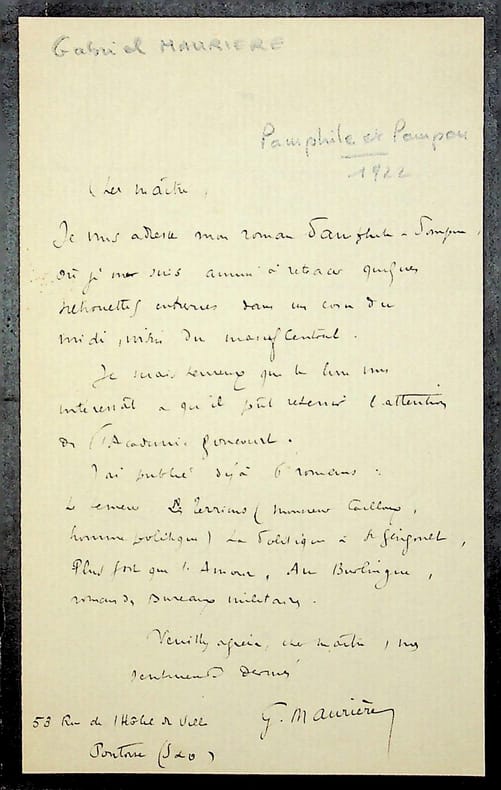 Gabriel MAURIERE
Pamphile et Pampou
1922
Cher maître,
Je vous adresse mon roman Pamphile et Pampou,
où je me suis amusé à retracer quelques
silhouettes entrevues dans un coin du
midi, voisin du massif Central.
Je serais heureux que le livre vous
intéressât et qu'il pût retenir l'attention
de l'Académie Goncourt.
J'ai publié déjà 6 romans :
Le semeur Les Terriens (Monsieur Cailloux,
homme politique) La Politique à St Gengoult,
Plus fort que l'Amour, Au Burlingue,
roman des Bureaux militaires.
Veuillez agréer, cher maître, mes
sentiments dévoués
G. Maurière
53 Rue de l'Hôtel de Ville
Pontoise (S&O)